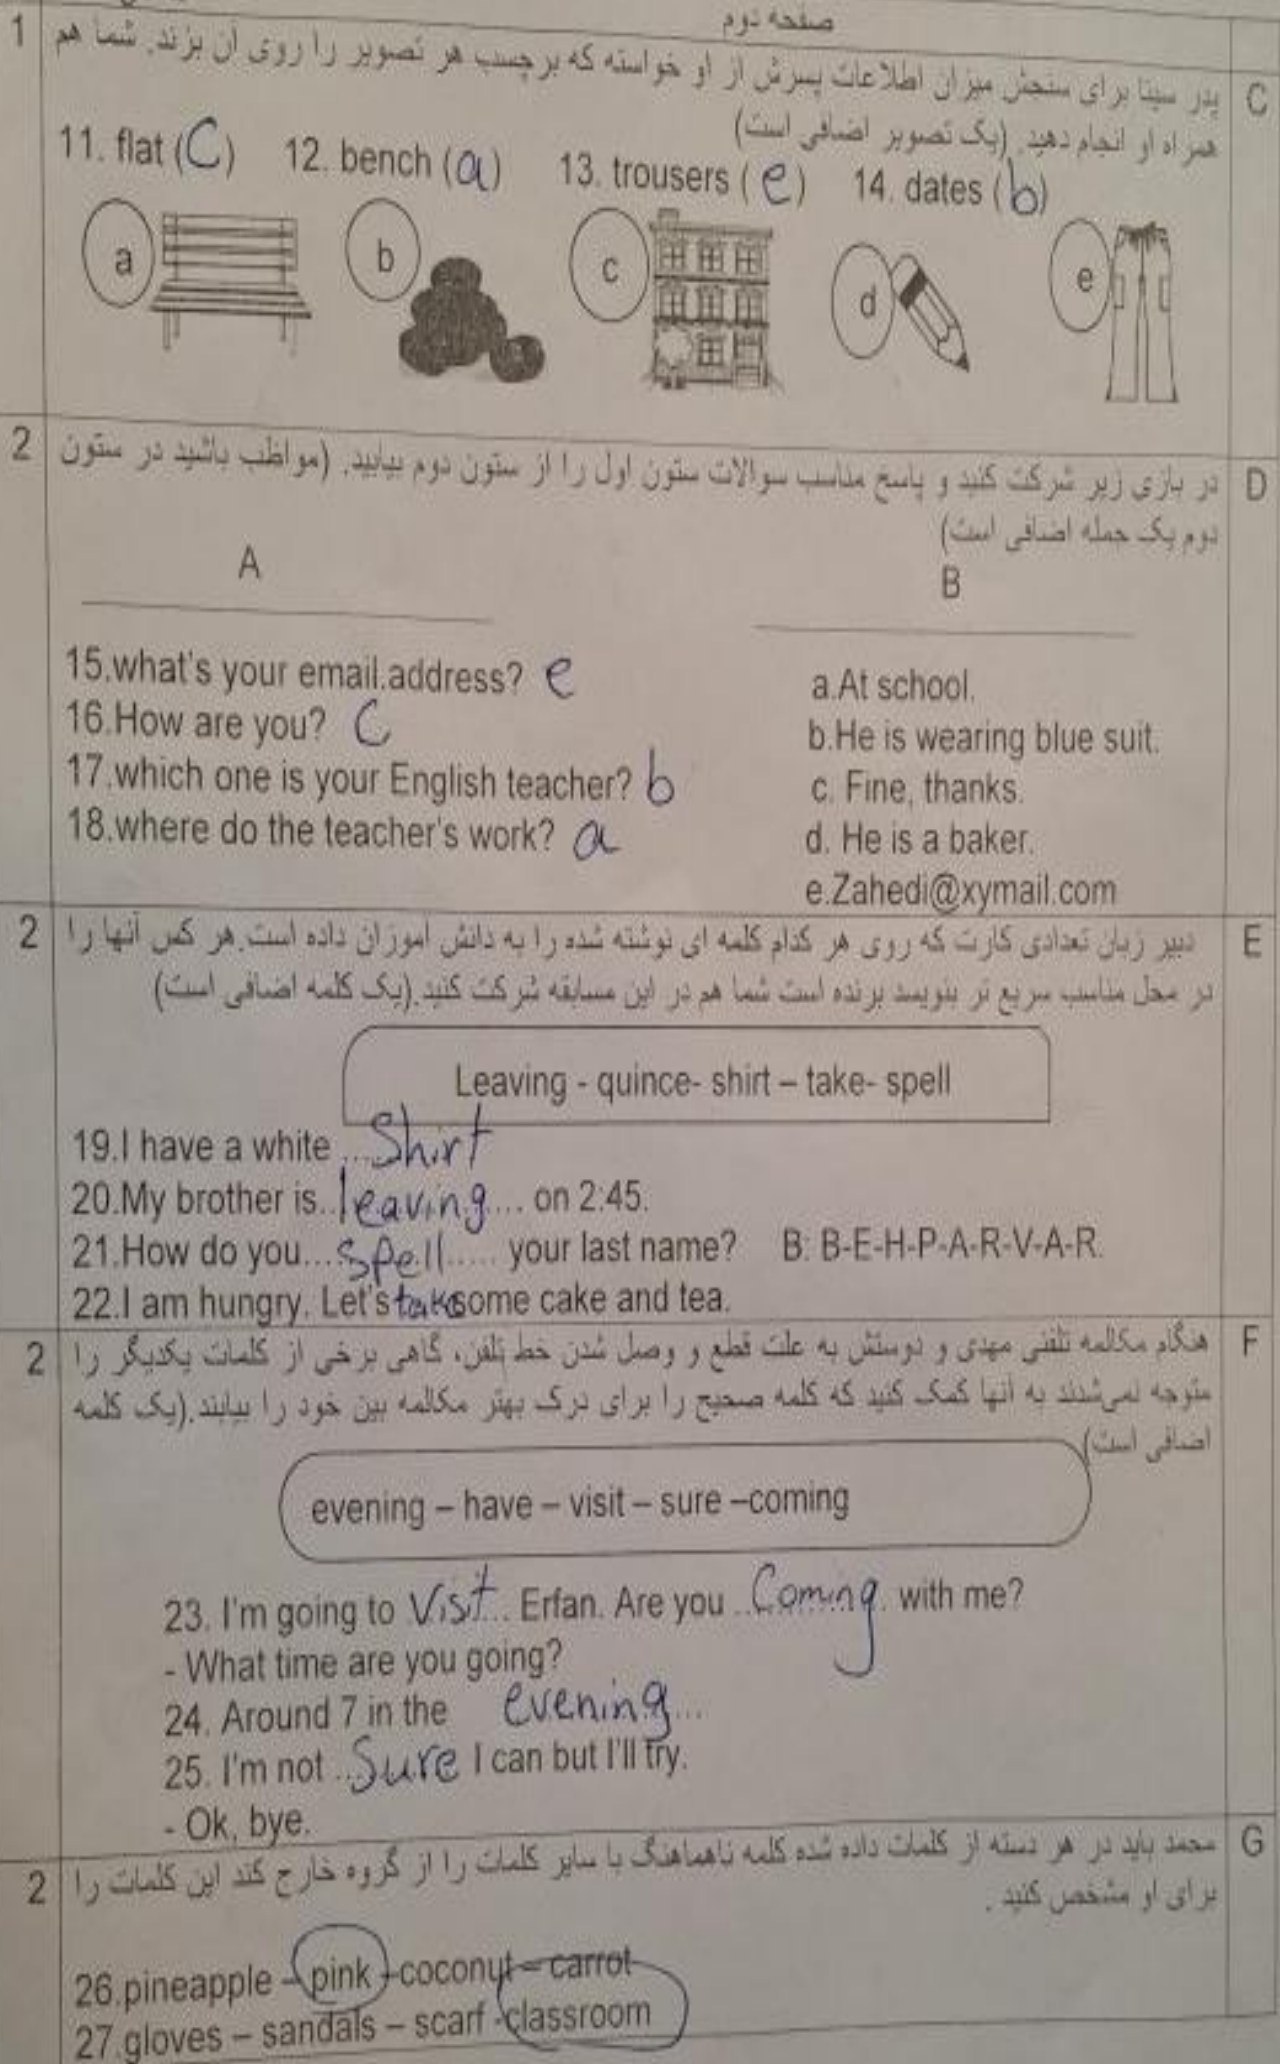 صفحه دوم
1 پدر سینا برای سنجش میزان اطلاعات پسرش از او خواسته که برچسب هر تصویر را روی آن بزند. شما هم C
همراه او انجام دهید. (یک تصویر اضافی است)
11. flat (C) 12. bench (a) 13. trousers (e) 14. dates (b)
a b c d e
2 در بازی زیر شرکت کنید و پاسخ مناسب سوالات ستون اول را از ستون دوم بیابید. (مواظب باشید در ستون D
دوم یک جمله اضافی است)
A B
15.what's your email.address? e a.At school.
16.How are you? C b.He is wearing blue suit.
17.which one is your English teacher? b c. Fine, thanks.
18.where do the teacher's work? a d. He is a baker.
e.Zahedi@xymail.com
2 دبیر زبان تعدادی کارت که روی هر کدام کلمه ای نوشته شده را به دانش اموزان داده است.هر کس آنها را E
در محل مناسب سریع تر بنویسد برنده است شما هم در این مسابقه شرکت کنید.(یک کلمه اضافی است)
Leaving - quince- shirt – take- spell
19.I have a white ...Shirt
20.My brother is..leaving.... on 2:45.
21.How do you....spell..... your last name? B: B-E-H-P-A-R-V-A-R.
22.I am hungry. Let's take some cake and tea.
2 هنگام مکالمه تلفنی مهدی و دوستش به علت قطع و وصل شدن خط تلفن، گاهی برخی از کلمات یکدیگر را F
متوجه نمی‌شدند به آنها کمک کنید که کلمه صحیح را برای درک بهتر مکالمه بین خود را بیابند.(یک کلمه
اضافی است)
evening – have – visit – sure –coming
23. I'm going to Visit.. Erfan. Are you ..Coming. with me?
- What time are you going?
24. Around 7 in the evening...
25. I'm not ...Sure I can but I'll try.
- Ok, bye.
2 محمد باید در هر دسته از کلمات داده شده کلمه ناهماهنگ با سایر کلمات را از گروه خارج کند این کلمات را G
برای او مشخص کنید .
26.pineapple – pink –coconut – carrot
27.gloves – sandals – scarf -classroom